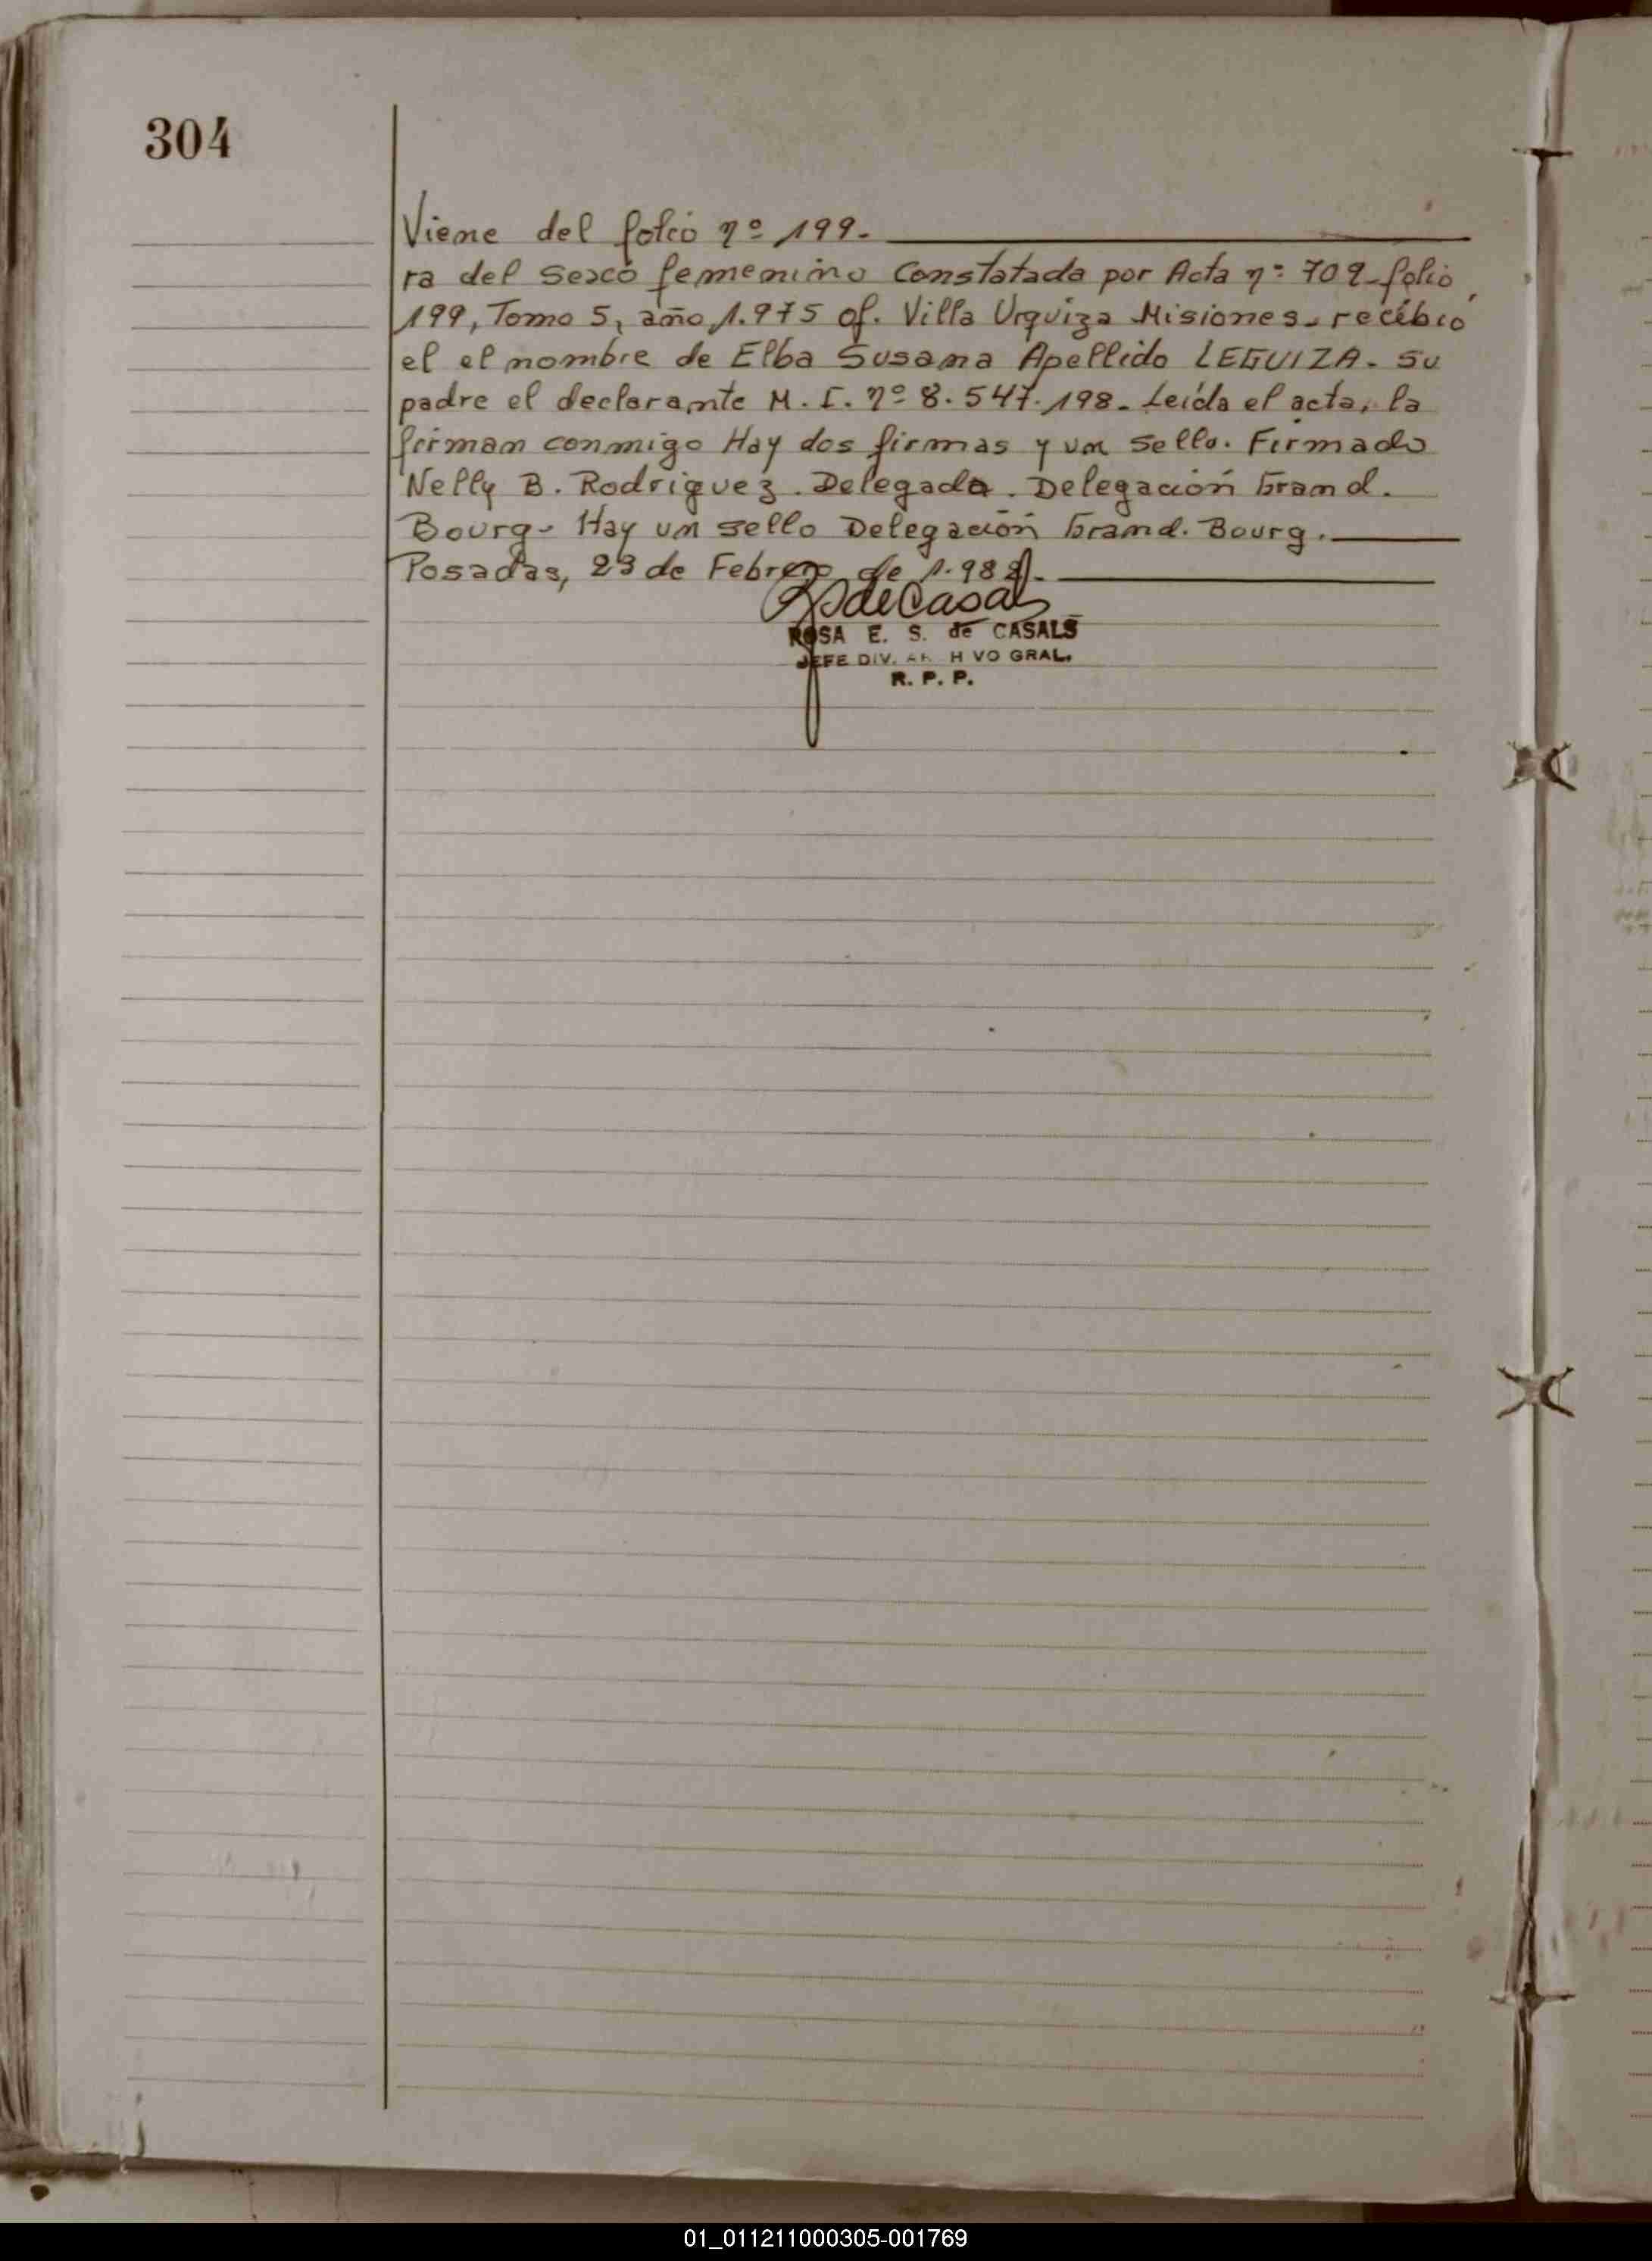 304
Viene del folio nº 199.
ra del sexo femenino Constatada por Acta nº 709 folio
199, Tomo 5, año 1.975 of. Villa Urquiza Misiones. recibio
el el nombre de Elba Susana Apellido LEGUIZA. Su
padre el declarante M. I. nº 8.547.198. Leída el acta, la
firman conmigo Hay dos firmas y un sello. Firmado
Nelly B. Rodriguez. Delegada. Delegación Grand.
Bourg. Hay un sello Delegación Grand. Bourg.
Posadas, 23 de Febrero de
de Casals
ROSA E. S. de CASALS
JEFE DIV. AR H VO GRAL.
R. P. P.
01_011211000305-001769